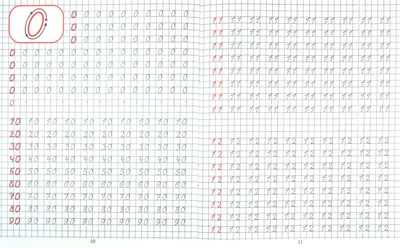 0
0 0 0 0 0 0 0 0 0 0
0 0 0 0 0 0 0 0 0 0
0 0 0 0 0 0 0 0 0 0
0 0 0 0 0 0 0 0 0 0 0 0 0 0 0
0 0 0 0 0 0 0 0 0 0 0 0 0 0 0
0 0 0 0 0 0 0 0 0 0 0 0 0 0 0
0 0 0 0 0 0 0 0 0 0 0 0 0 0 0
0
10 10 10 10 10 10 10 10 10 10
20 20 20 20 20 20 20 20 20 20
30 30 30 30 30 30 30 30 30 30
40 40 40 40 40 40 40 40 40 40
50 50 50 50 50 50 50 50 50 50
60 60 60 60 60 60 60 60 60 60
70 70 70 70 70 70 70 70 70 70
80 80 80 80 80 80 80 80 80 80
90 90 90 90 90 90 90 90 90 90
10
11 11 11 11 11 11 11 11 11 11
11 11 11 11 11 11 11 11 11 11
11 11 11 11 11 11 11 11 11 11
11 11 11 11 11 11 11 11 11 11
11 11 11 11 11 11 11 11 11 11
11 11 11 11 11 11 11 11 11 11
11 11 11 11 11 11 11 11 11 11
11 11 11 11 11 11 11 11 11 11
12 12 12 12 12 12 12 12 12 12
12 12 12 12 12 12 12 12 12 12
12 12 12 12 12 12 12 12 12 12
12 12 12 12 12 12 12 12 12 12
12 12 12 12 12 12 12 12 12 12
12 12 12 12 12 12 12 12 12 12
12 12 12 12 12 12 12 12 12 12
12 12 12 12 12 12 12 12 12 12
11